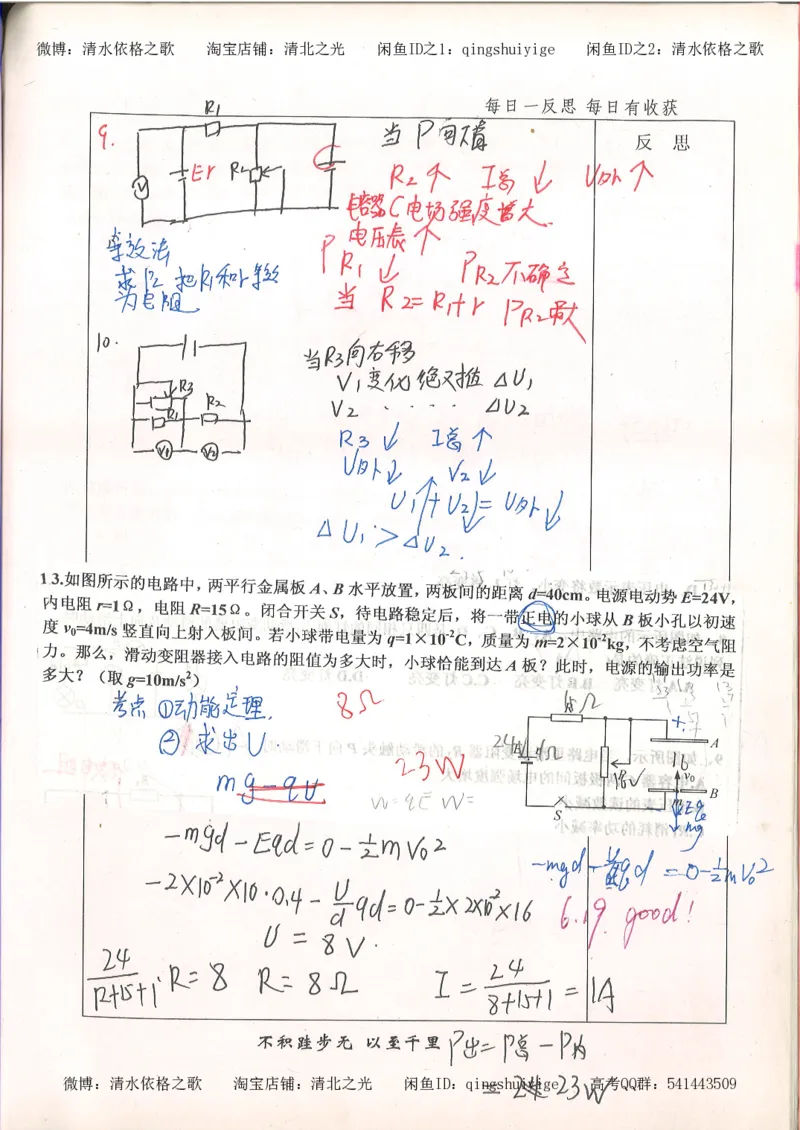 微博：清水依格之歌 淘宝店铺：清北之光 闲鱼ID之1：qingshuiyige 闲鱼ID之2：清水依格之歌
每日一反思 每日有收获
反 思
9.
R1
V
Er
R2
C
当 P 向上滑
R2↑ I总↓ U外↑
电容器C电场强度增大.
电压表↑
PR1↓ PR2不确定
当 R2=R1+r PR2最大
等效法
求P2 把R1和r等效
为电阻
10.
R3
R1
R2
V1
V2
当R3向右移
V1变化绝对值 ΔU1
V2 · · · · ΔU2
R3↓ I总↑
U外↓ V2↓
U1↑+U2↓=U外↓
ΔU1>ΔU2.
13.如图所示的电路中，两平行金属板 A、B 水平放置，两板间的距离 d=40cm。电源电动势 E=24V，
内电阻 r=1Ω，电阻 R=15Ω。闭合开关 S，待电路稳定后，将一带正电的小球从 B 板小孔以初速
度 v₀=4m/s 竖直向上射入板间。若小球带电量为 q=1×10⁻²C，质量为 m=2×10⁻²kg，不考虑空气阻
力。那么，滑动变阻器接入电路的阻值为多大时，小球恰能到达 A 板？此时，电源的输出功率是
多大？（取 g=10m/s²）
考点 ①动能定理.
②求出U
8Ω
23W
mg-qU
W=qE W=
15Ω
24V
1Ω
S
A
v₀
B
Eq
mg
-mgd-Eqd=0-½mv0²
-mgd-qd=0-½mv0²
-2×10⁻²×10·0.4-U/d qd=0-½×2×10⁻²×16
6.19. good!
U=8V.
24/(R+15+1)·R=8 R=8Ω I=24/(8+15+1)=1A
不积跬步无 以至千里
P出=P总-P内
=23W
微博：清水依格之歌 淘宝店铺：清北之光 闲鱼ID：qingshuiyige 高考QQ群：541443509